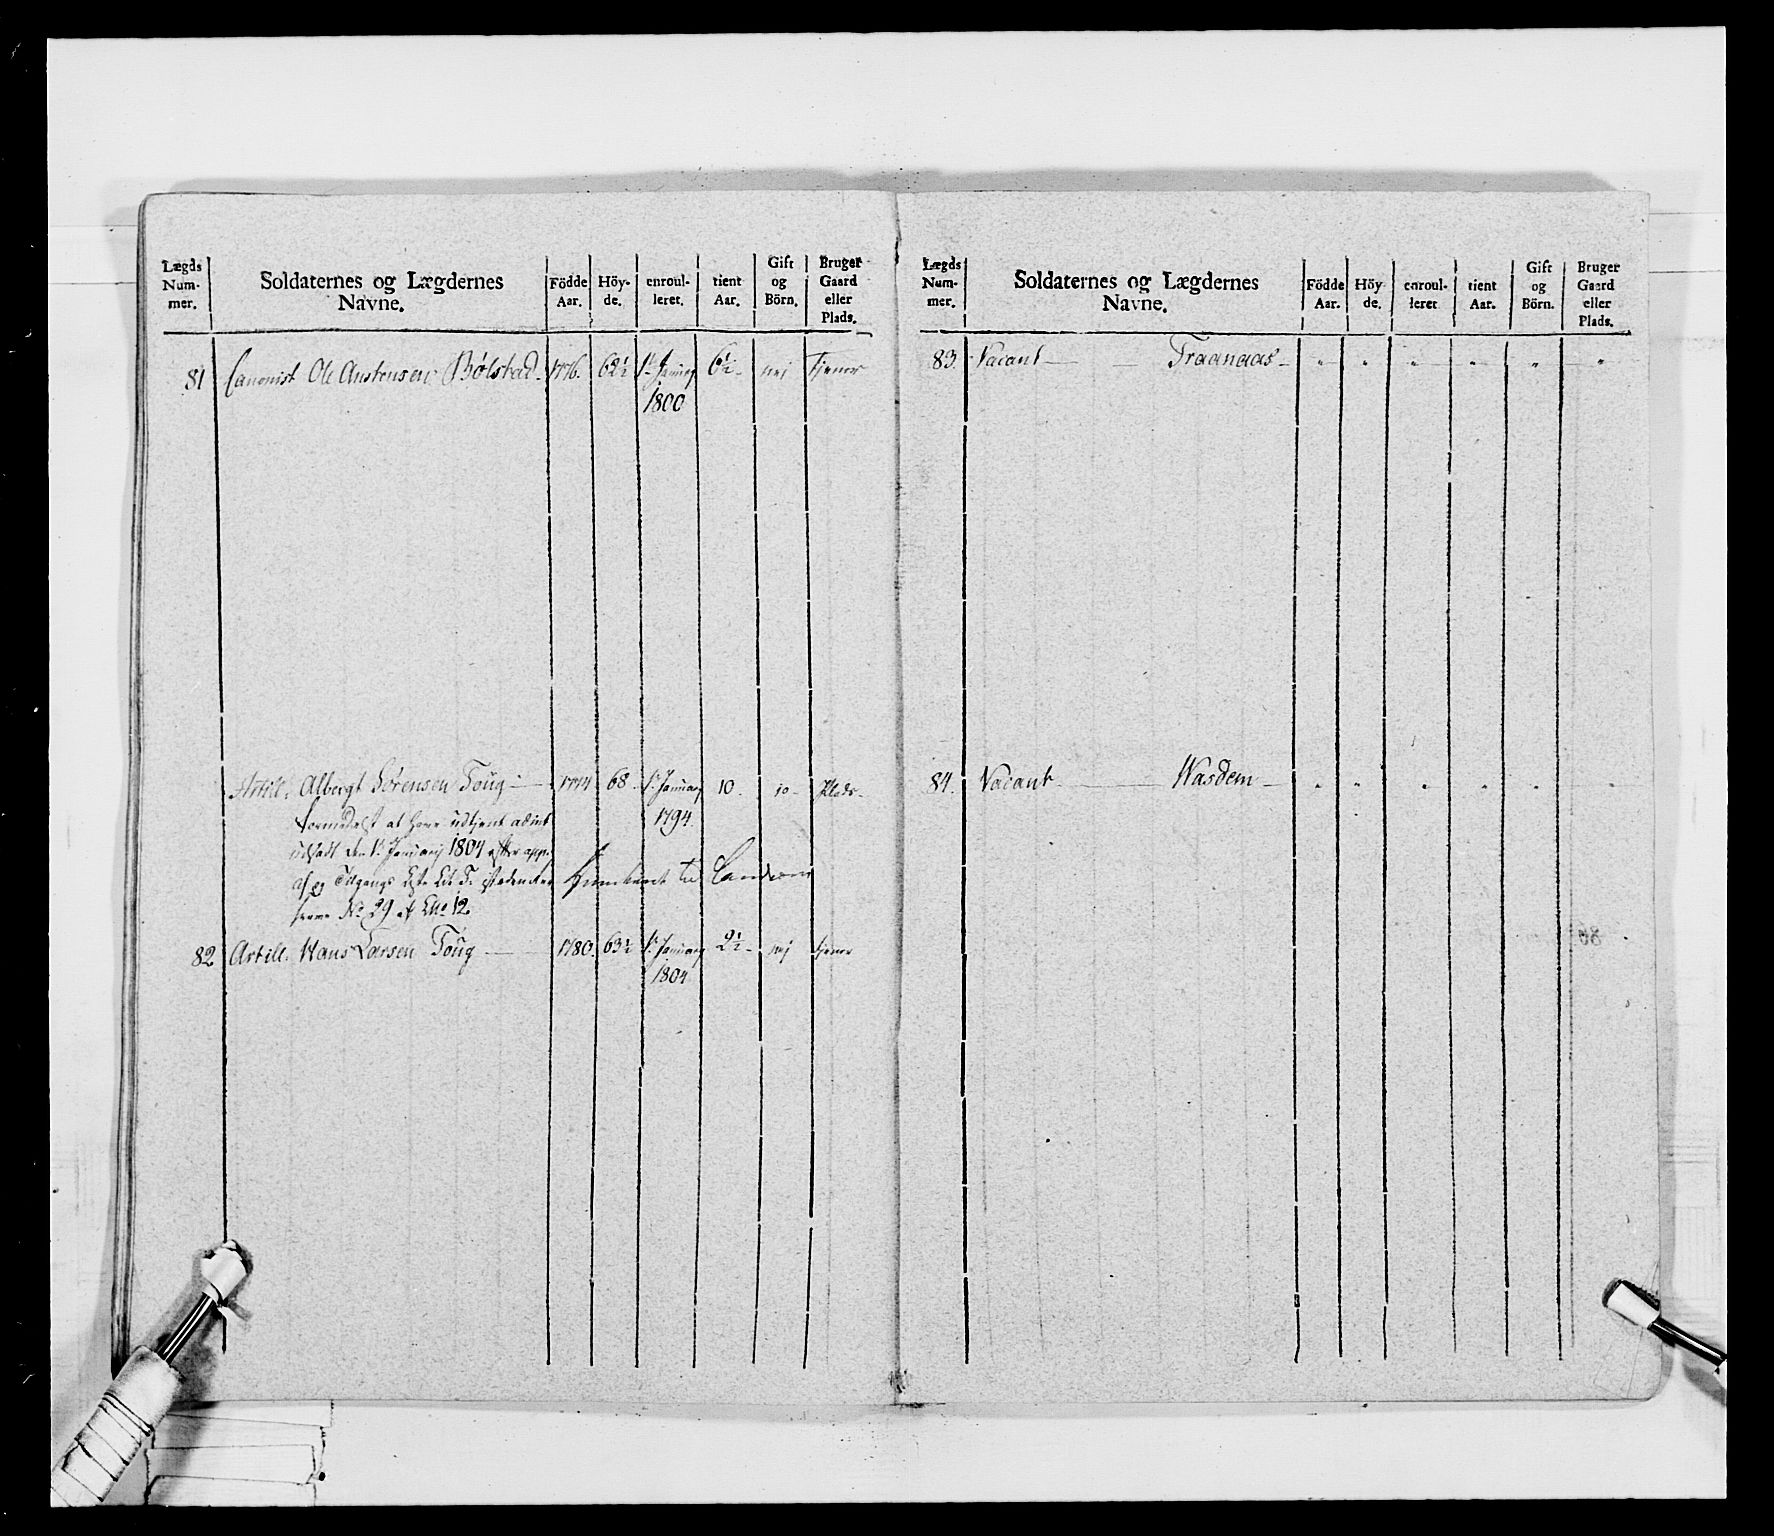 Lægds Num- mer. Soldaternes og Lægdernes Navne. Födde Aar. Höy- de. enroul- leret. tient Aar. Gift og Börn. Bruger Gaard eller Plads.
81 Canonist Ole Anstensen Bølstad 1776. 62½ 1ste Januarj 6½ nej tjener
1800
Artill. Albregt Sørensen Toug 1774 68 1ste Januarj 10 jo Plads
formedelst at have udtjent
1794.
udsadt den 1ste Januarj 1804 efter
af og Tilgangs Liste
til Landværn
No 29 af 12
82 Artill. Hans Larsen Toug 1780. 63½ 1ste Januarj 2½ nej tjener
1804
Lægds Num- mer. Soldaternes og Lægdernes Navne. Födde Aar. Höy- de. enroul- leret tient Aar. Gift og Börn. Bruger Gaard eller Plads.
83. Vacant Traanaas " " " " " "
84. Vacant Wasdem " " " " " "